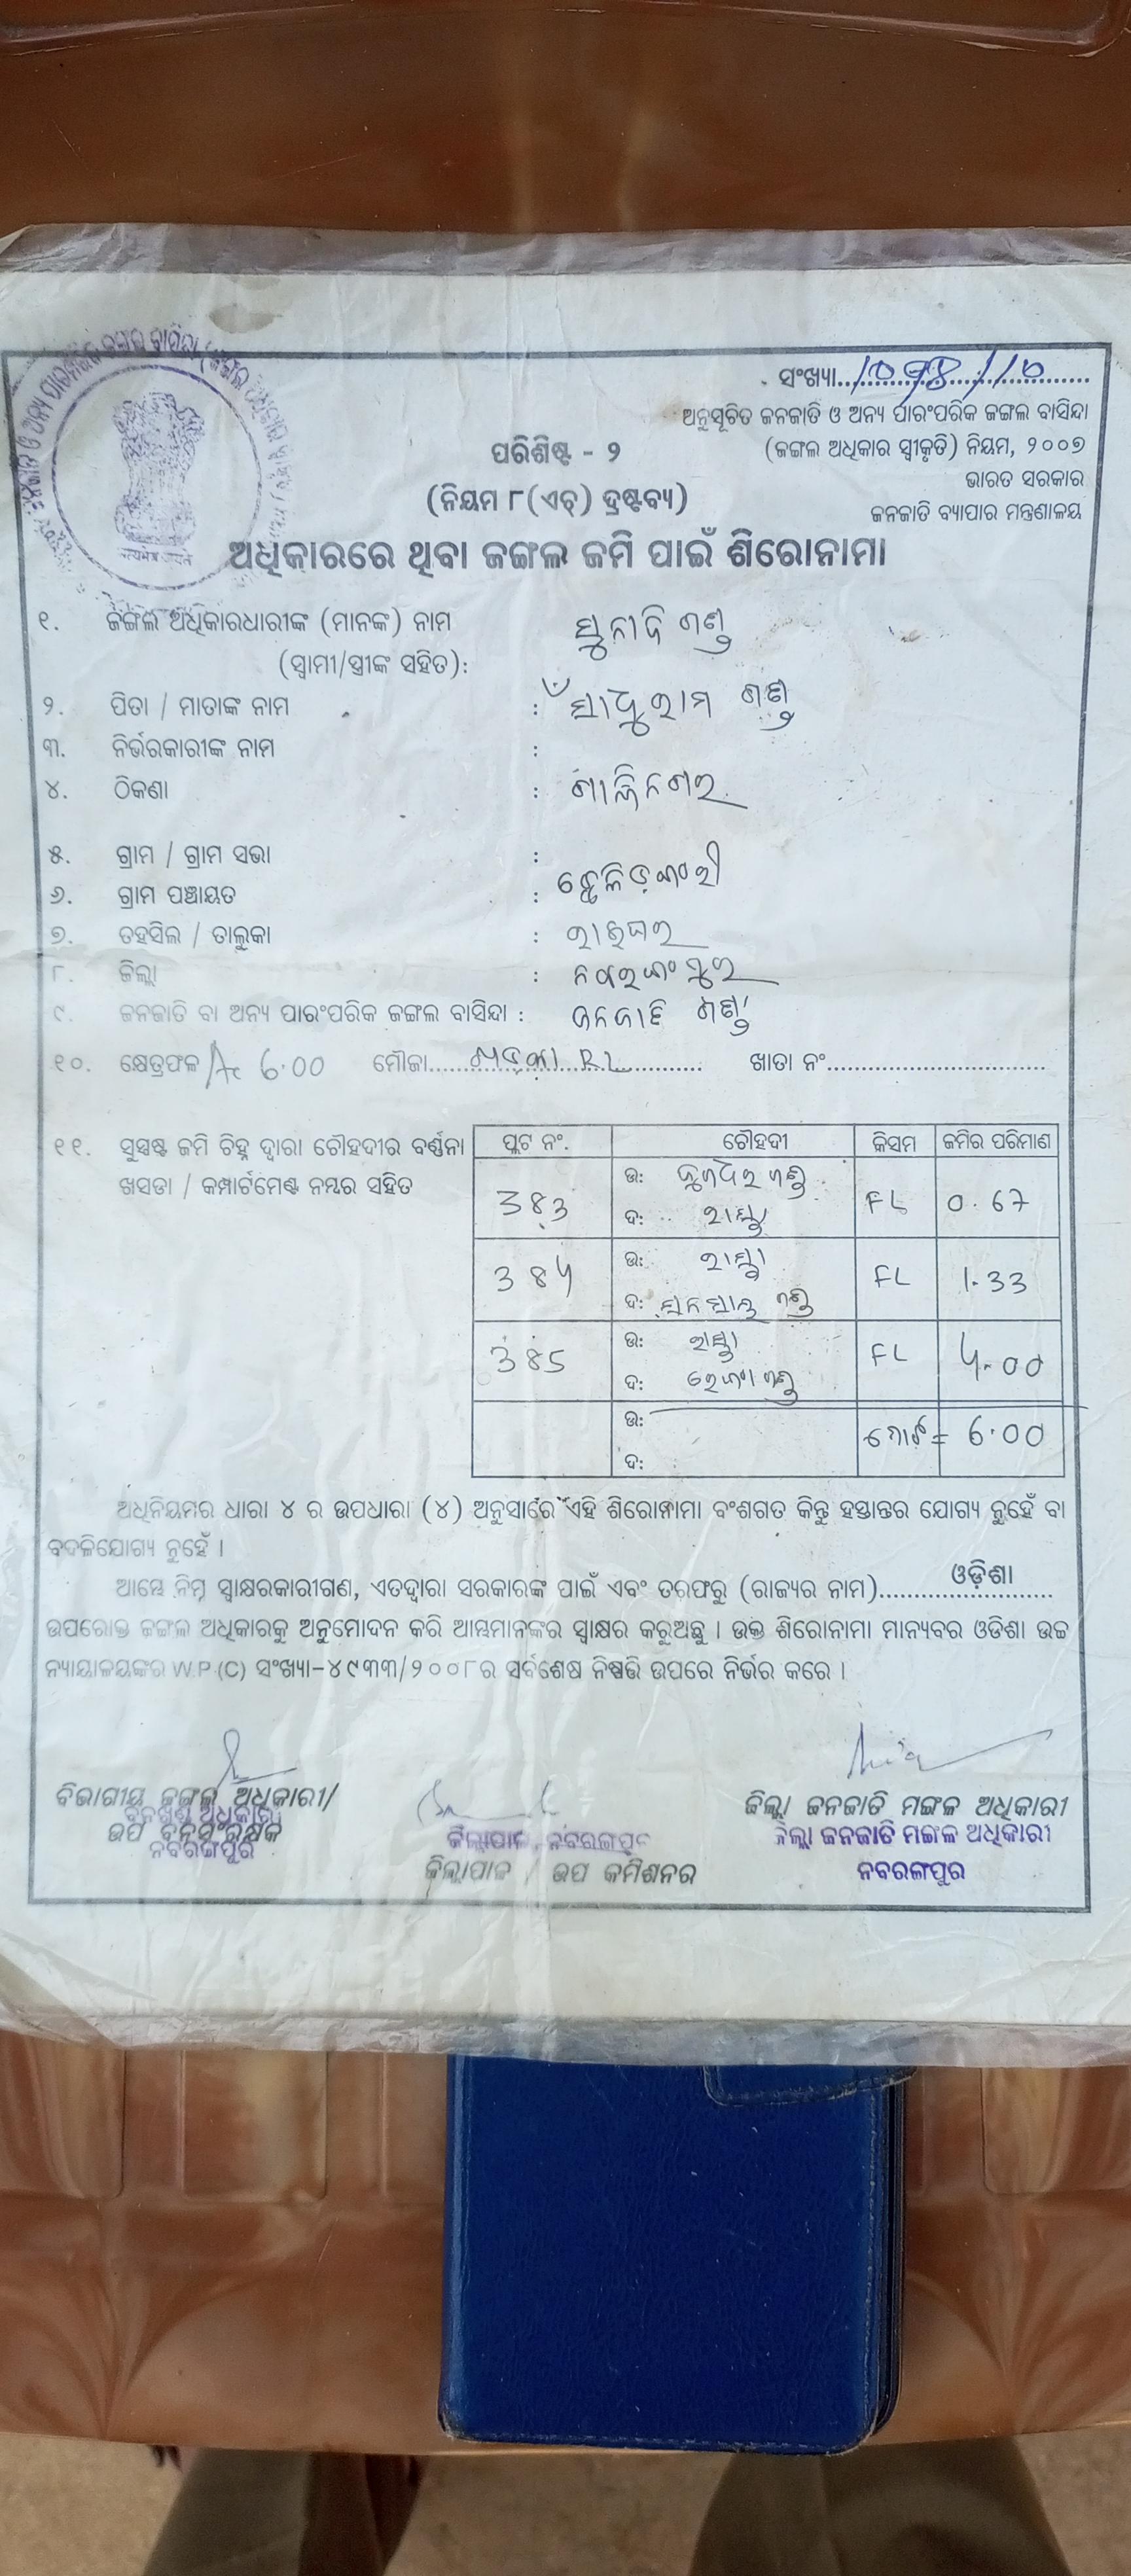 ସଂଖ୍ୟା
ଅନୁସୂଚିତ ଜନଜାତି ଓ ଅନ୍ୟ ପାରଂପରିକ ଜଙ୍ଗଲ ବାସିନ୍ଦା
(ଜଙ୍ଗଲ ଅଧିକାର ସ୍ୱୀକୃତି) ନିୟମ, ୨୦୦୭
ଭାରତ ସରକାର
ଜନଜାତି ବ୍ୟାପାର ମନ୍ତ୍ରଣାଳୟ
ପରିଶିଷ୍ଟ - ୨
(ନିୟମ ୮(ଏଚ୍) ଦ୍ରଷ୍ଟବ୍ୟ)
ଅଧିକାରରେ ଥିବା ଜଙ୍ଗଲ ଜମି ପାଇଁ ଶିରୋନାମା
୧. ଜଙ୍ଗଲ ଅଧିକାରଧାରୀଙ୍କ (ମାନଙ୍କ) ନାମ
(ସ୍ୱାମୀ/ସ୍ତ୍ରୀଙ୍କ ସହିତ):
୨. ପିତା / ମାତାଙ୍କ ନାମ : ସାଧୁରାମ ଗଣ୍ଡ
୩. ନିର୍ଭରକାରୀଙ୍କ ନାମ :
୪. ଠିକଣା :
୫. ଗ୍ରାମ / ଗ୍ରାମ ସଭା :
୬. ଗ୍ରାମ ପଞ୍ଚାୟତ :
୭. ତହସିଲ / ତାଲୁକା : ରାଇଘର
୮. ଜିଲ୍ଲା : ନବରଙ୍ଗପୁର
୯. ଜନଜାତି ବା ଅନ୍ୟ ପାରଂପରିକ ଜଙ୍ଗଲ ବାସିନ୍ଦା : ଜନଜାତି ଗଣ୍ଡ
୧୦. କ୍ଷେତ୍ରଫଳ Ac 6.00 ମୌଜା ଖାତା ନଂ
୧୧. ସୁସ୍ପଷ୍ଟ ଜମି ଚିହ୍ନ ଦ୍ୱାରା ଚୌହଦୀର ବର୍ଣ୍ଣନା
ଖସଡା / କମ୍ପାର୍ଟମେଣ୍ଟ ନମ୍ବର ସହିତ
ପ୍ଲଟ ନଂ. ଚୌହଦୀ କିସମ ଜମିର ପରିମାଣ
383 ଉ: ଦ: ରାସ୍ତା FL 0.67
384 ଉ: ରାସ୍ତା ଦ: FL 1.33
385 ଉ: ରାସ୍ତା ଦ: FL 4.00
ଉ: ଦ: ମୋଟ = 6.00
ଅଧିନିୟମର ଧାରା ୪ ର ଉପଧାରା (୪) ଅନୁସାରେ ଏହି ଶିରୋନାମା ବଂଶଗତ କିନ୍ତୁ ହସ୍ତାନ୍ତର ଯୋଗ୍ୟ ନୁହେଁ ବା
ବଦଳିଯୋଗ୍ୟ ନୁହେଁ ।
ଆମ୍ଭେ ନିମ୍ନ ସ୍ୱାକ୍ଷରକାରୀଗଣ, ଏତଦ୍ୱାରା ସରକାରଙ୍କ ପାଇଁ ଏବଂ ତରଫରୁ (ରାଜ୍ୟର ନାମ) ଓଡ଼ିଶା
ଉପରୋକ୍ତ ଜଙ୍ଗଲ ଅଧିକାରକୁ ଅନୁମୋଦନ କରି ଆମ୍ଭମାନଙ୍କର ସ୍ୱାକ୍ଷର କରୁଅଛୁ । ଉକ୍ତ ଶିରୋନାମା ମାନ୍ୟବର ଓଡିଶା ଉଚ୍ଚ
ନ୍ୟାୟାଳୟଙ୍କର W.P.(C) ସଂଖ୍ୟା-୪୯୩୩/୨୦୦୮ର ସର୍ବଶେଷ ନିଷ୍ପତ୍ତି ଉପରେ ନିର୍ଭର କରେ ।
ବିଭାଗୀୟ ଜଙ୍ଗଲ ଅଧିକାରୀ/
ବନଖଣ୍ଡ ଅଧିକାରୀ
ଉପ ବନସଂରକ୍ଷକ
ନବରଙ୍ଗପୁର
ଜିଲ୍ଲାପାଳ, ନବରଙ୍ଗପୁର
ଜିଲ୍ଲାପାଳ / ଉପ କମିଶନର
ଜିଲ୍ଲା ଜନଜାତି ମଙ୍ଗଳ ଅଧିକାରୀ
ଜିଲ୍ଲା ଜନଜାତି ମଙ୍ଗଳ ଅଧିକାରୀ
ନବରଙ୍ଗପୁର